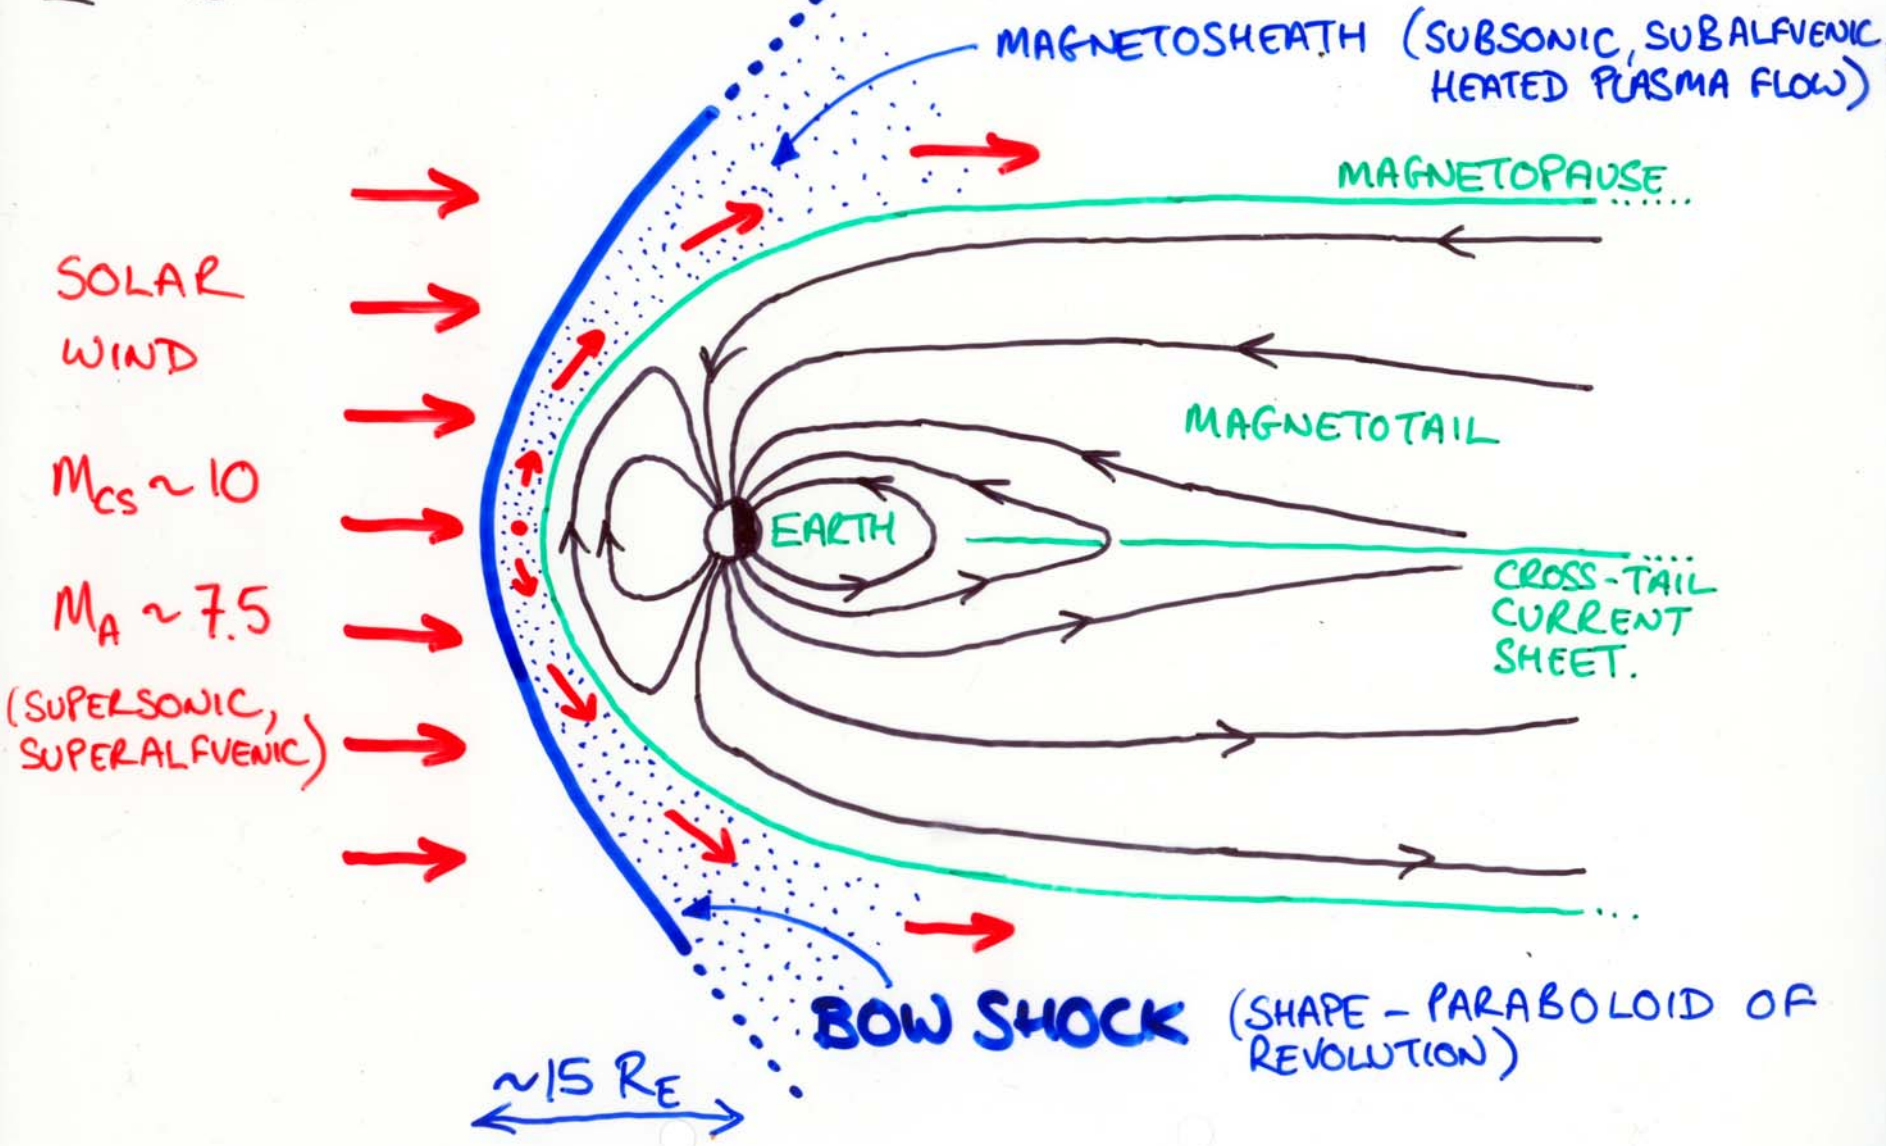 MAGNETOSHEATH (SUBSONIC, SUBALFVENIC
HEATED PLASMA FLOW)
MAGNETOPAUSE
SOLAR
WIND
MCS ~ 10
MA ~ 7.5
(SUPERSONIC,
SUPERALFVENIC)
MAGNETOTAIL
EARTH
CROSS-TAIL
CURRENT
SHEET.
BOW SHOCK (SHAPE - PARABOLOID OF
REVOLUTION)
~15 RE